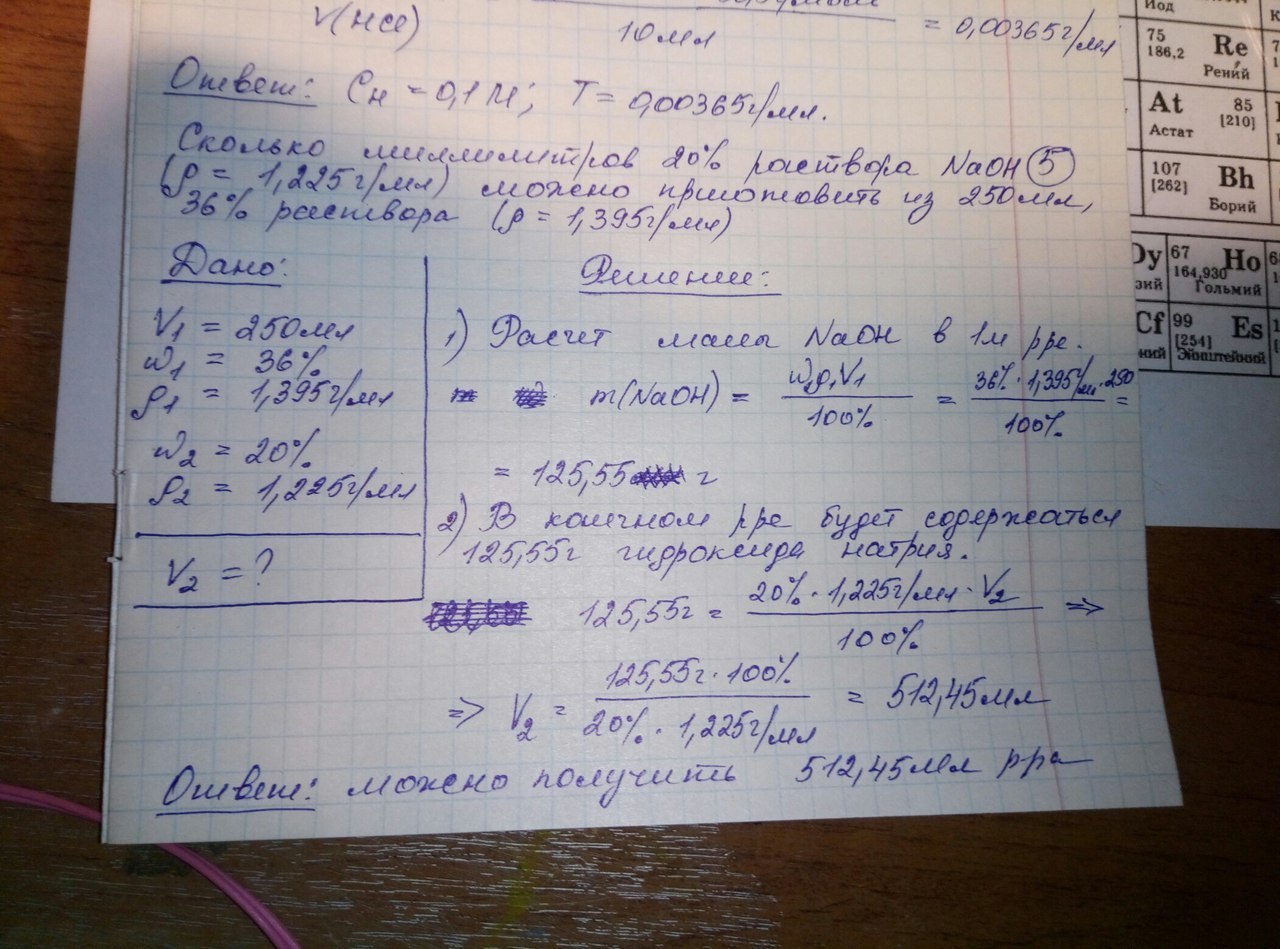 V(HCl)
10мл
= 0,00365г/мл
Ответ: Сн = 0,1М; T = 0,00365г/мл.
Сколько миллилитров 20% раствора NaOH 5
(ρ = 1,225г/мл) можно приготовить из 250мл,
36% раствора (ρ = 1,395г/мл)
Дано:
V1 = 250мл
ω1 = 36%
ρ1 = 1,395г/мл
ω2 = 20%
ρ2 = 1,225г/мл
V2 = ?
Решение:
1) Расчет массы NaOH в 1м рре.
m(NaOH) = ω1ρ1V1 / 100% = 36% · 1,395г/мл · 250 / 100% =
= 125,55 г
2) В конечном рре будет содержаться
125,55г гидроксида натрия.
125,55г = 20% · 1,225г/мл · V2 / 100% =>
=> V2 = 125,55г · 100% / 20% · 1,225г/мл = 512,45мл
Ответ: можно получить 512,45мл рра
Иод
75
186,2
Re
Рений
At
85
[210]
Астат
107
[262]
Bh
Борий
Dy
67
164,930
Ho
Гольмий
Cf
99
[254]
Es
Эйнштейний